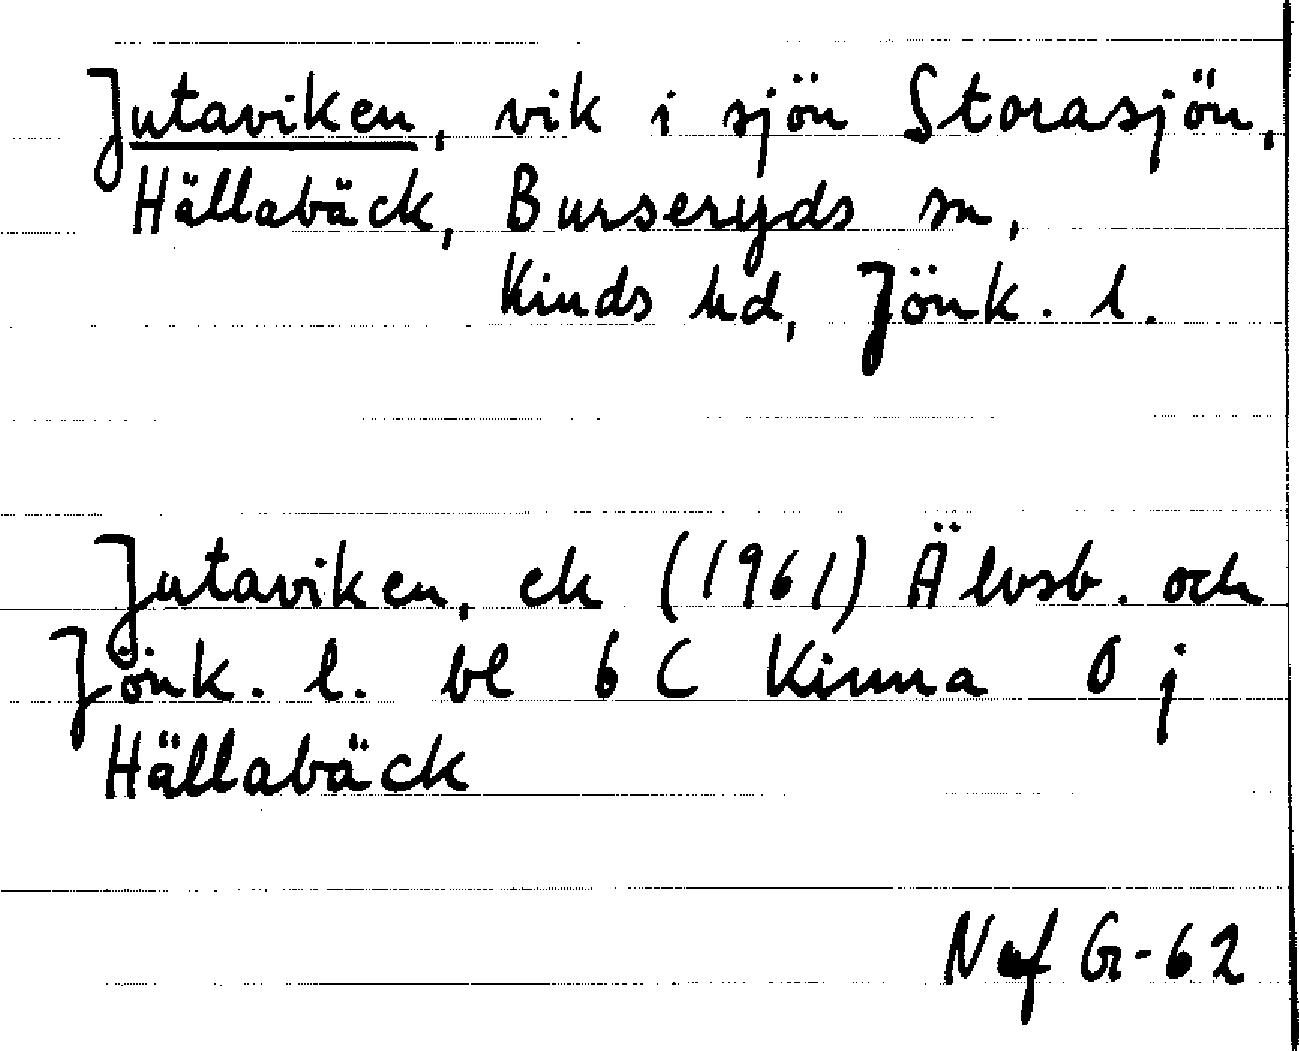 Jutaviken, vik i sjön Storasjön,
Hällabäck, Burseryds sn,
Kinds hd, Jönk. l.
Jutaviken, ek (1961) Älvsb. och
Jönk. l. bl 6 C Kinna 0 j
Hällabäck
Naf Gr-62